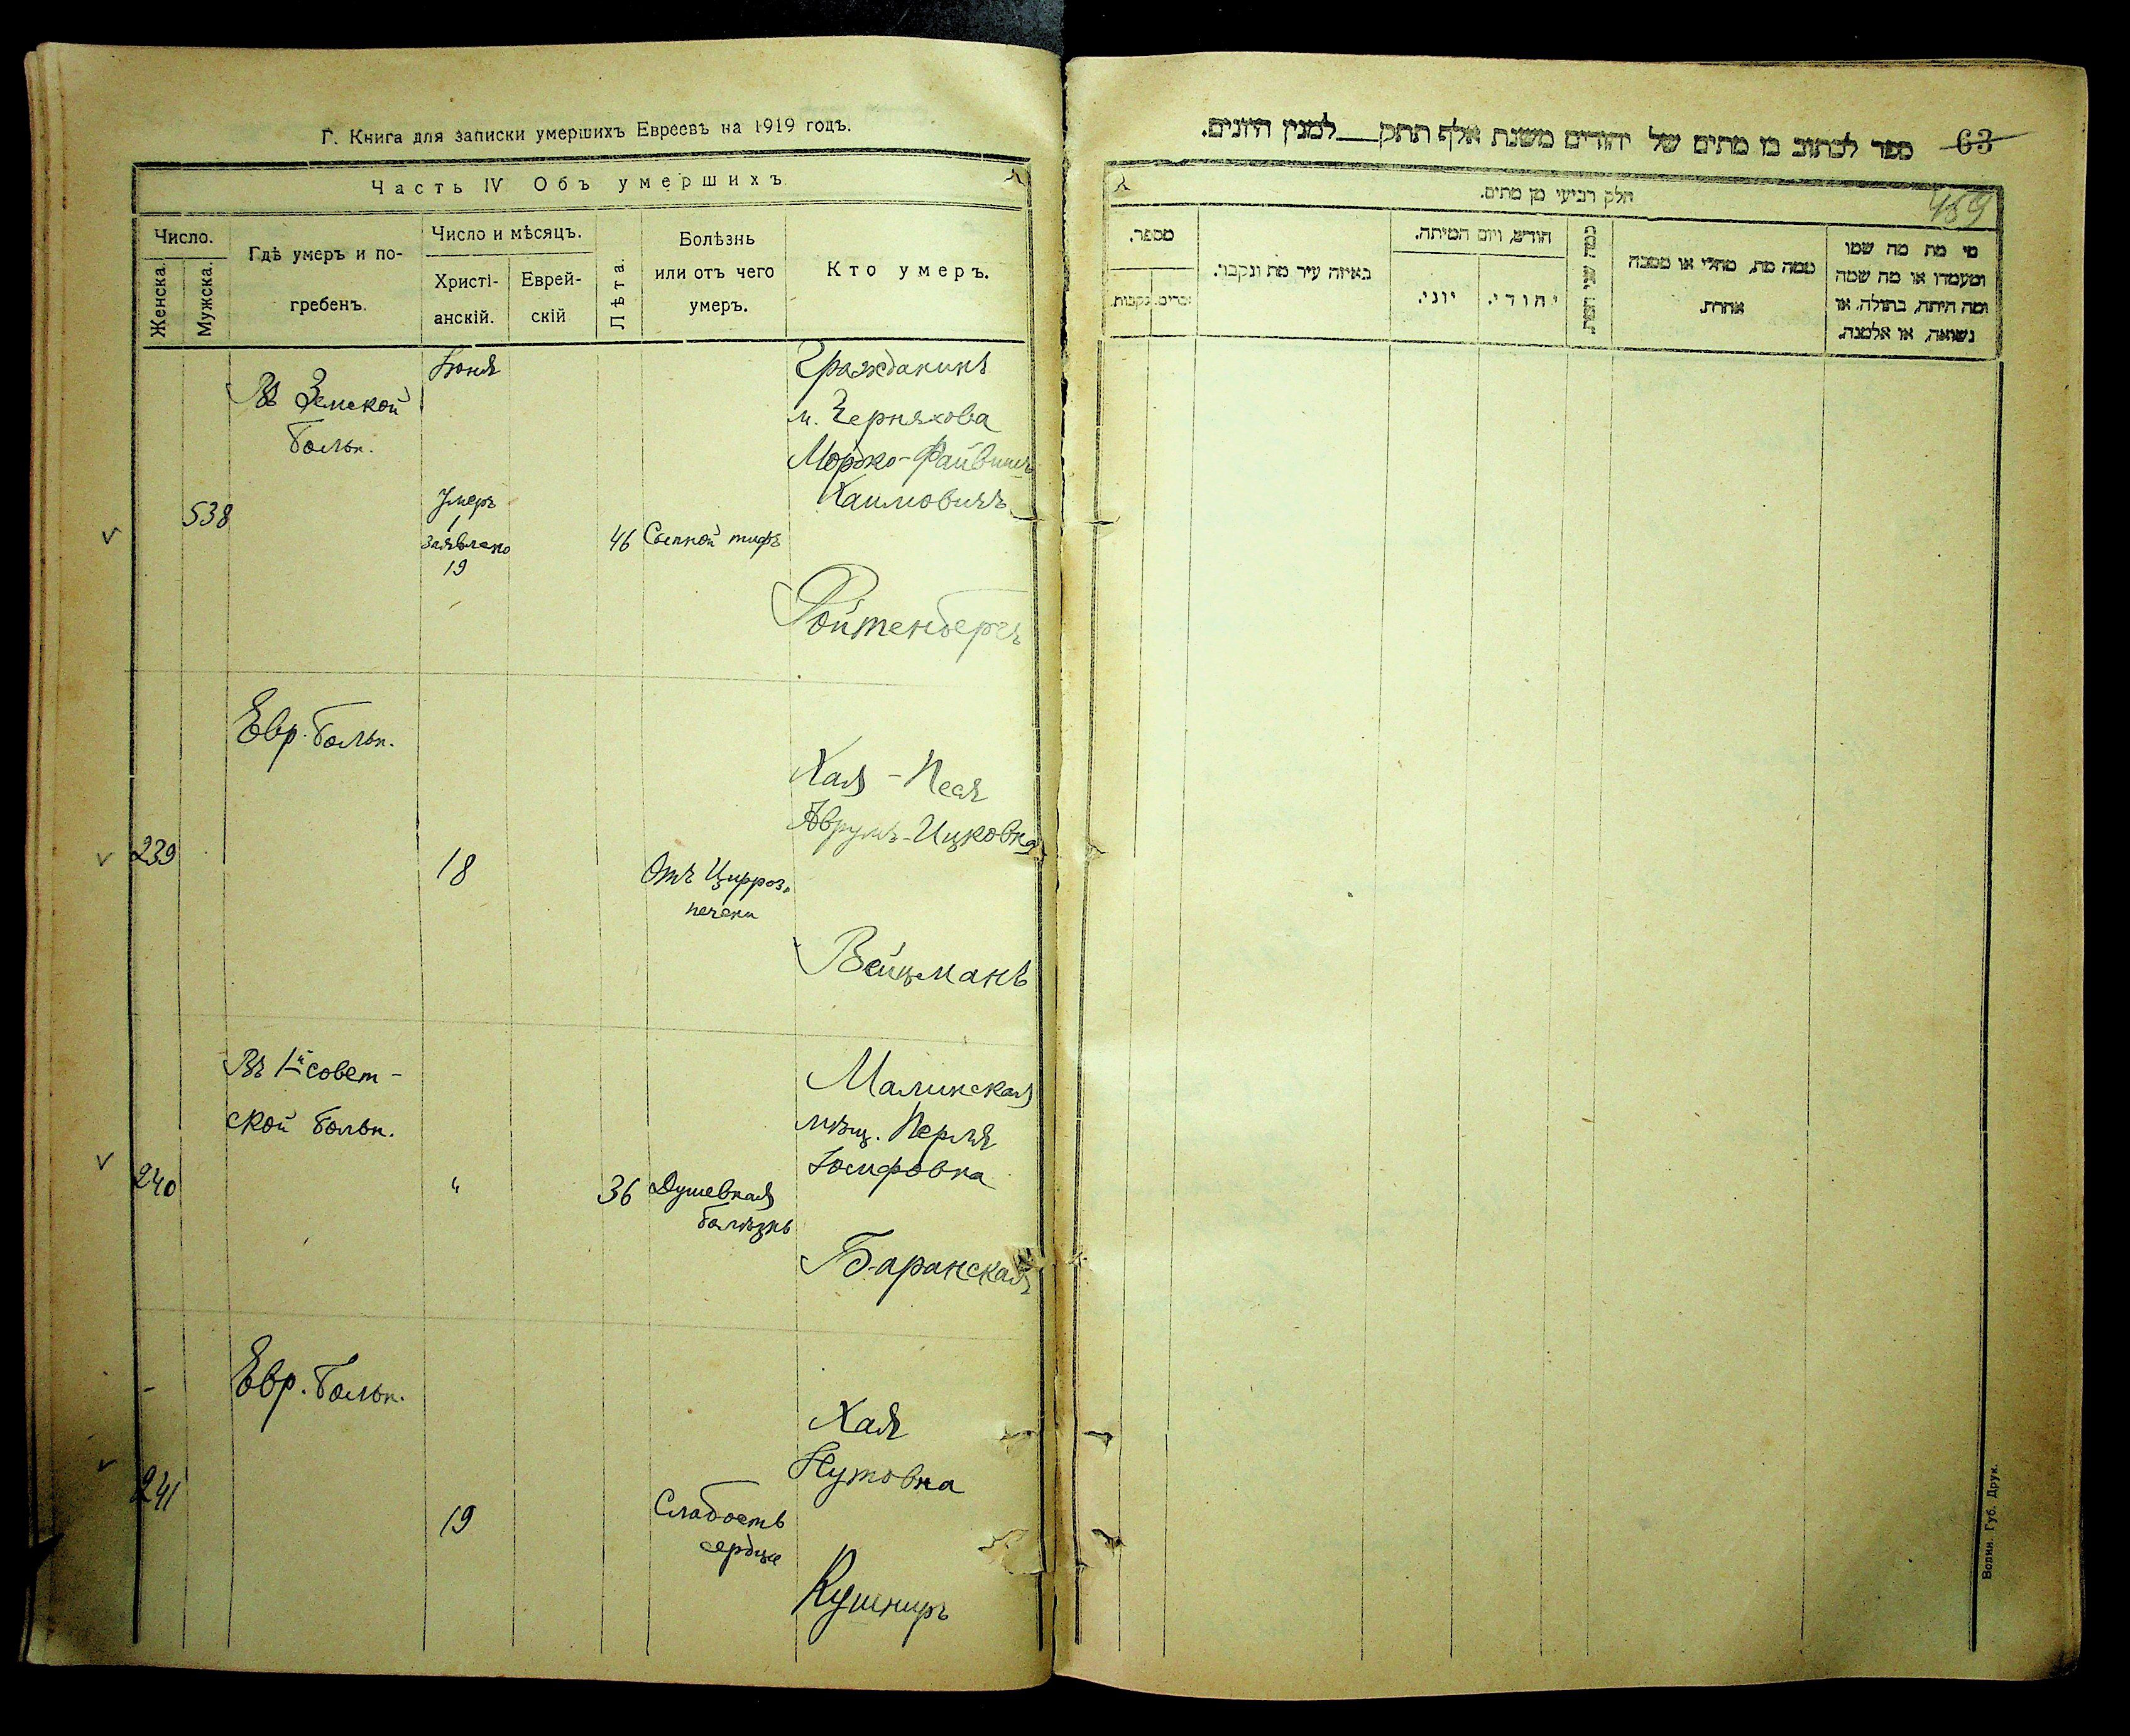 Г. Книга для записки умершихъ Евреевъ на 1919 годъ.
Часть IV Объ умершихъ
Число.
Женска.
Мужска.
Гдѣ умеръ и по-
гребенъ.
Число и мѣсяцъ.
Христі-
анскій.
Еврей-
скій
Лѣта.
Болѣзнь
или отъ чего
умеръ.
Кто умеръ.
538
Въ Земской
больн.
Іюня
Умеръ
1
заявлено
19
46
Сыпной тифъ
Гражданинъ
м. Черняхова
Мордко-Файвишъ
Хаимовичъ
Ройтенбергъ
239
Евр. больн.
18
Отъ Цирроз.
печени
Хая - Песя
Аврумъ-Ицковна
Вейцманъ
240
Въ 1й совет-
ской больн.
"
36
Душевная
болѣзнь
Малинская
мѣщ. Перля
Іосифовна
Баранская
241
Евр. больн.
19
Слабость
сердца
Хая
Нутовна
Кушниръ
ספר לכתוב בו מתים של יהודים משנת אלף תתק__ למנין היונים.
63
469
חלק רביעי מן מתים.
מספר.
זכרים.
נקבות.
באיזה עיר מת ונקבר.
חודש ויום המיתה.
יוני.
יהודי.
כמה שני המת
ממה מת, מחלי או מסבה
אחרת.
מי מת מה שמו
ומעמדו או מה שמה
ומה היתה, בתולה, או
נשואה, או אלמנה.
Волин. Губ. Друк.